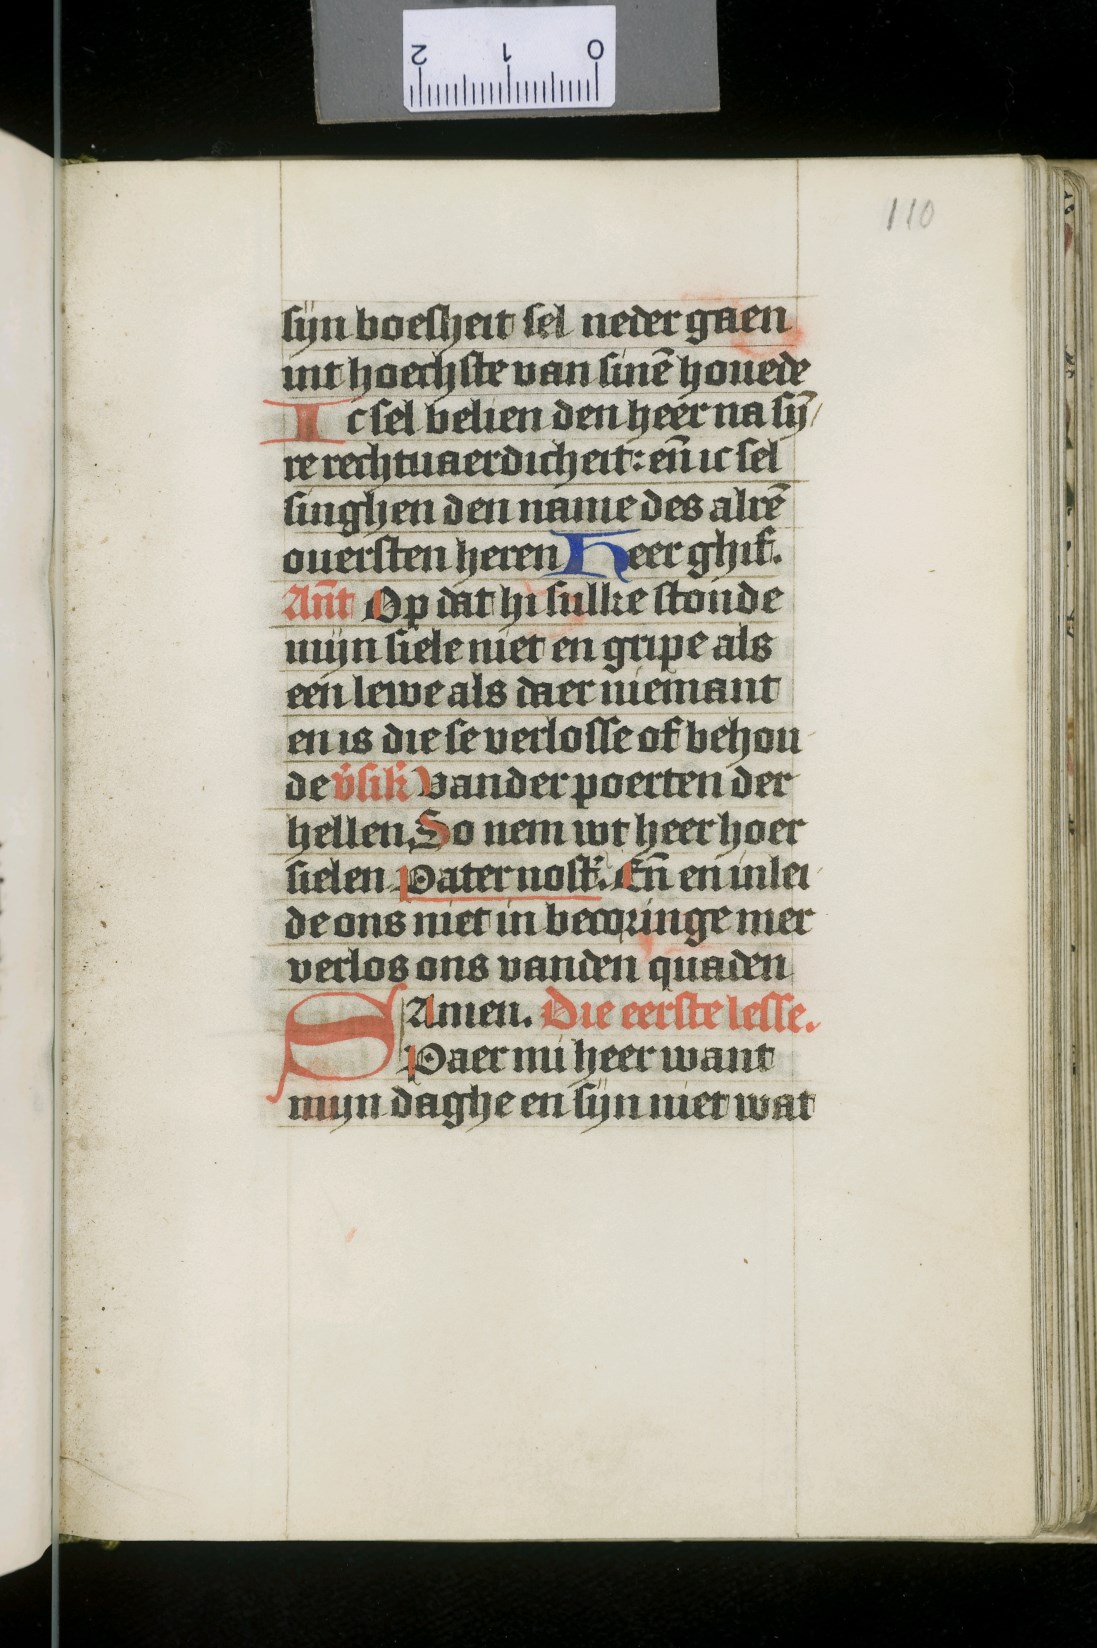 110
sijn boesheit sel neder gaen
int hoechste van sinē houede
Ic sel belien den heer na sij̄
re rechtuaerdicheit: eñ ic sel
singhen den name des alrē
ouersten heren Heer ghif.
Añt Op dat hi sulke stonde
mijn siele niet en gripe als
een lewe als daer niemant
en is die se verlosse of behou
de v̉sik̉ Vander poerten der
hellen So nem wt heer hoer
sielen Pater nost̉. Eñ en inlei
de ons niet in becoringe mer
verlos ons vanden quaden
Amen. Die eerste lesse.
SPaer mi heer want
mijn daghe en sijn niet wat
2 1 0